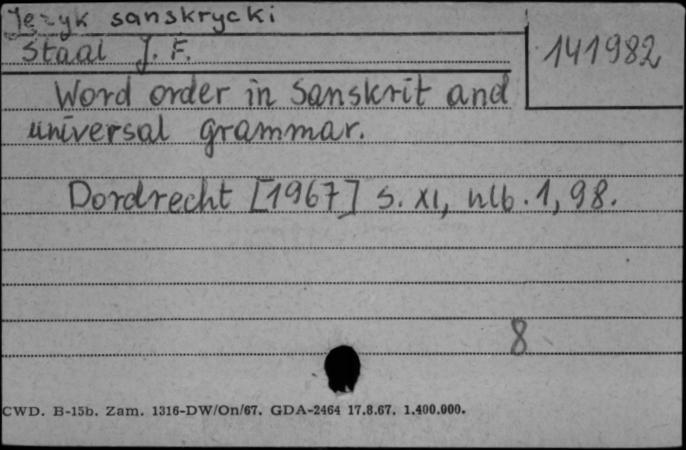 Język sanskrycki
Staal J. F.
141982
Word order in Sanskrit and
universal grammar.
Dordrecht [1967] s. XI, nlb. 1, 98.
8
CWD. B-15b. Zam. 1316-DW/On/67. GDA-2464 17.8.67. 1.400.000.